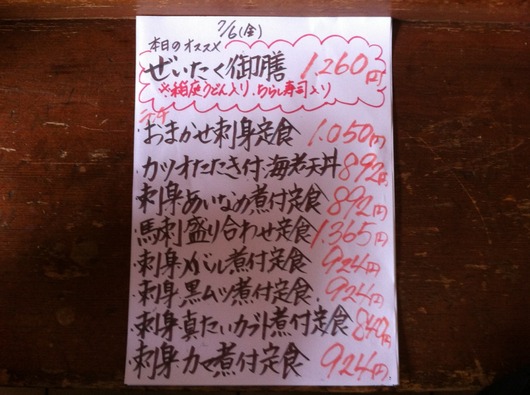 7/6(金)
本日のオススメ
ぜいたく御膳 1.260円
※稲庭うどん入り.ちらし寿司入り
おまかせ刺身定食 1.050円
カツオたたき付.海老天丼 892円
刺身.あいなめ煮付定食 892円
馬刺盛り合わせ定食 1.365円
刺身.メバル煮付定食 924円
刺身.黒ムツ煮付定食 924円
刺身.真たいカブト煮付定食 840円
刺身カマ煮付定食 924円